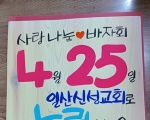 사랑 나눔♥바자회
4월 25일
일산신성교회로